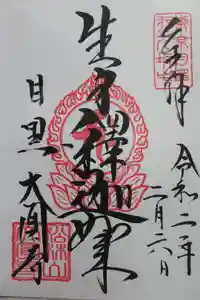 奉拝
令和二年
二月六日
生身釋迦如来
目黒
大圓寺